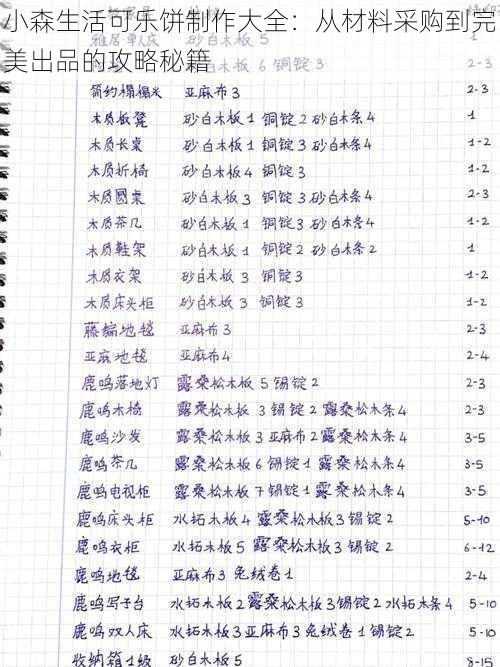 小森生活可乐饼制作大全：从材料采购到完
美出品的攻略秘籍
雅居单人床
木板 6 铜锭 2 2-3
简约榻榻米 亚麻布3 2-3
木质板凳 砂白木板1 铜锭2 砂白木条4 1
木质长桌 砂白木板1 铜锭3 砂白木条4 1-2
木质折椅 砂白木板4 铜锭3 1-2
木质圆桌 砂白木板3 铜锭3 砂白木条4 2-3
木质茶几 砂白木板1 铜锭3 砂白木条4 1-2
木质鞋架 砂白木板1 铜锭2 砂白木条2 1
木质衣架 砂白木板3 铜锭3 1-2
木质床头柜 砂白木板3 铜锭3 1-2
藤编地毯 亚麻布3 2-3
亚麻地毯 亚麻布4 2-4
鹿鸣落地灯 露桑松木板5 锡锭2 2-3
鹿鸣木椅 露桑松木板3 锡锭2 露桑松木条4 2-3
鹿鸣沙发 露桑松木板3 亚麻布2 露桑松木条4 3-5
鹿鸣茶几 露桑松木板6 锡锭1 露桑松木条4 3-5
鹿鸣电视柜 露桑松木板7 锡锭1 露桑松木条4 3-5
鹿鸣床头柜 水拓木板4 露桑松木板3 锡锭2 5-10
鹿鸣衣柜 水拓木板5 露桑松木板3 锡锭2 6-12
鹿鸣地毯 亚麻布3 兔绒卷1 2-4
鹿鸣写字台 水拓木板2 露桑松木板3 锡锭2 水拓木条4 5-10
鹿鸣双人床 水拓木板3 亚麻布3 兔绒卷1 锡锭2 5-10
收纳箱1级 砂白木板5 8-15